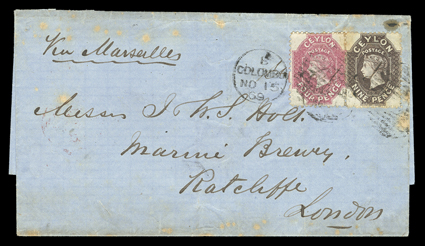 Via Marseilles
B
COLOMBO
NO 15
CEYLON
POSTAGE
FOUR PENCE
CEYLON
POSTAGE
NINE PENCE
Messrs J & W. S. Holt.
Marine Brewery,
Ratcliffe
London